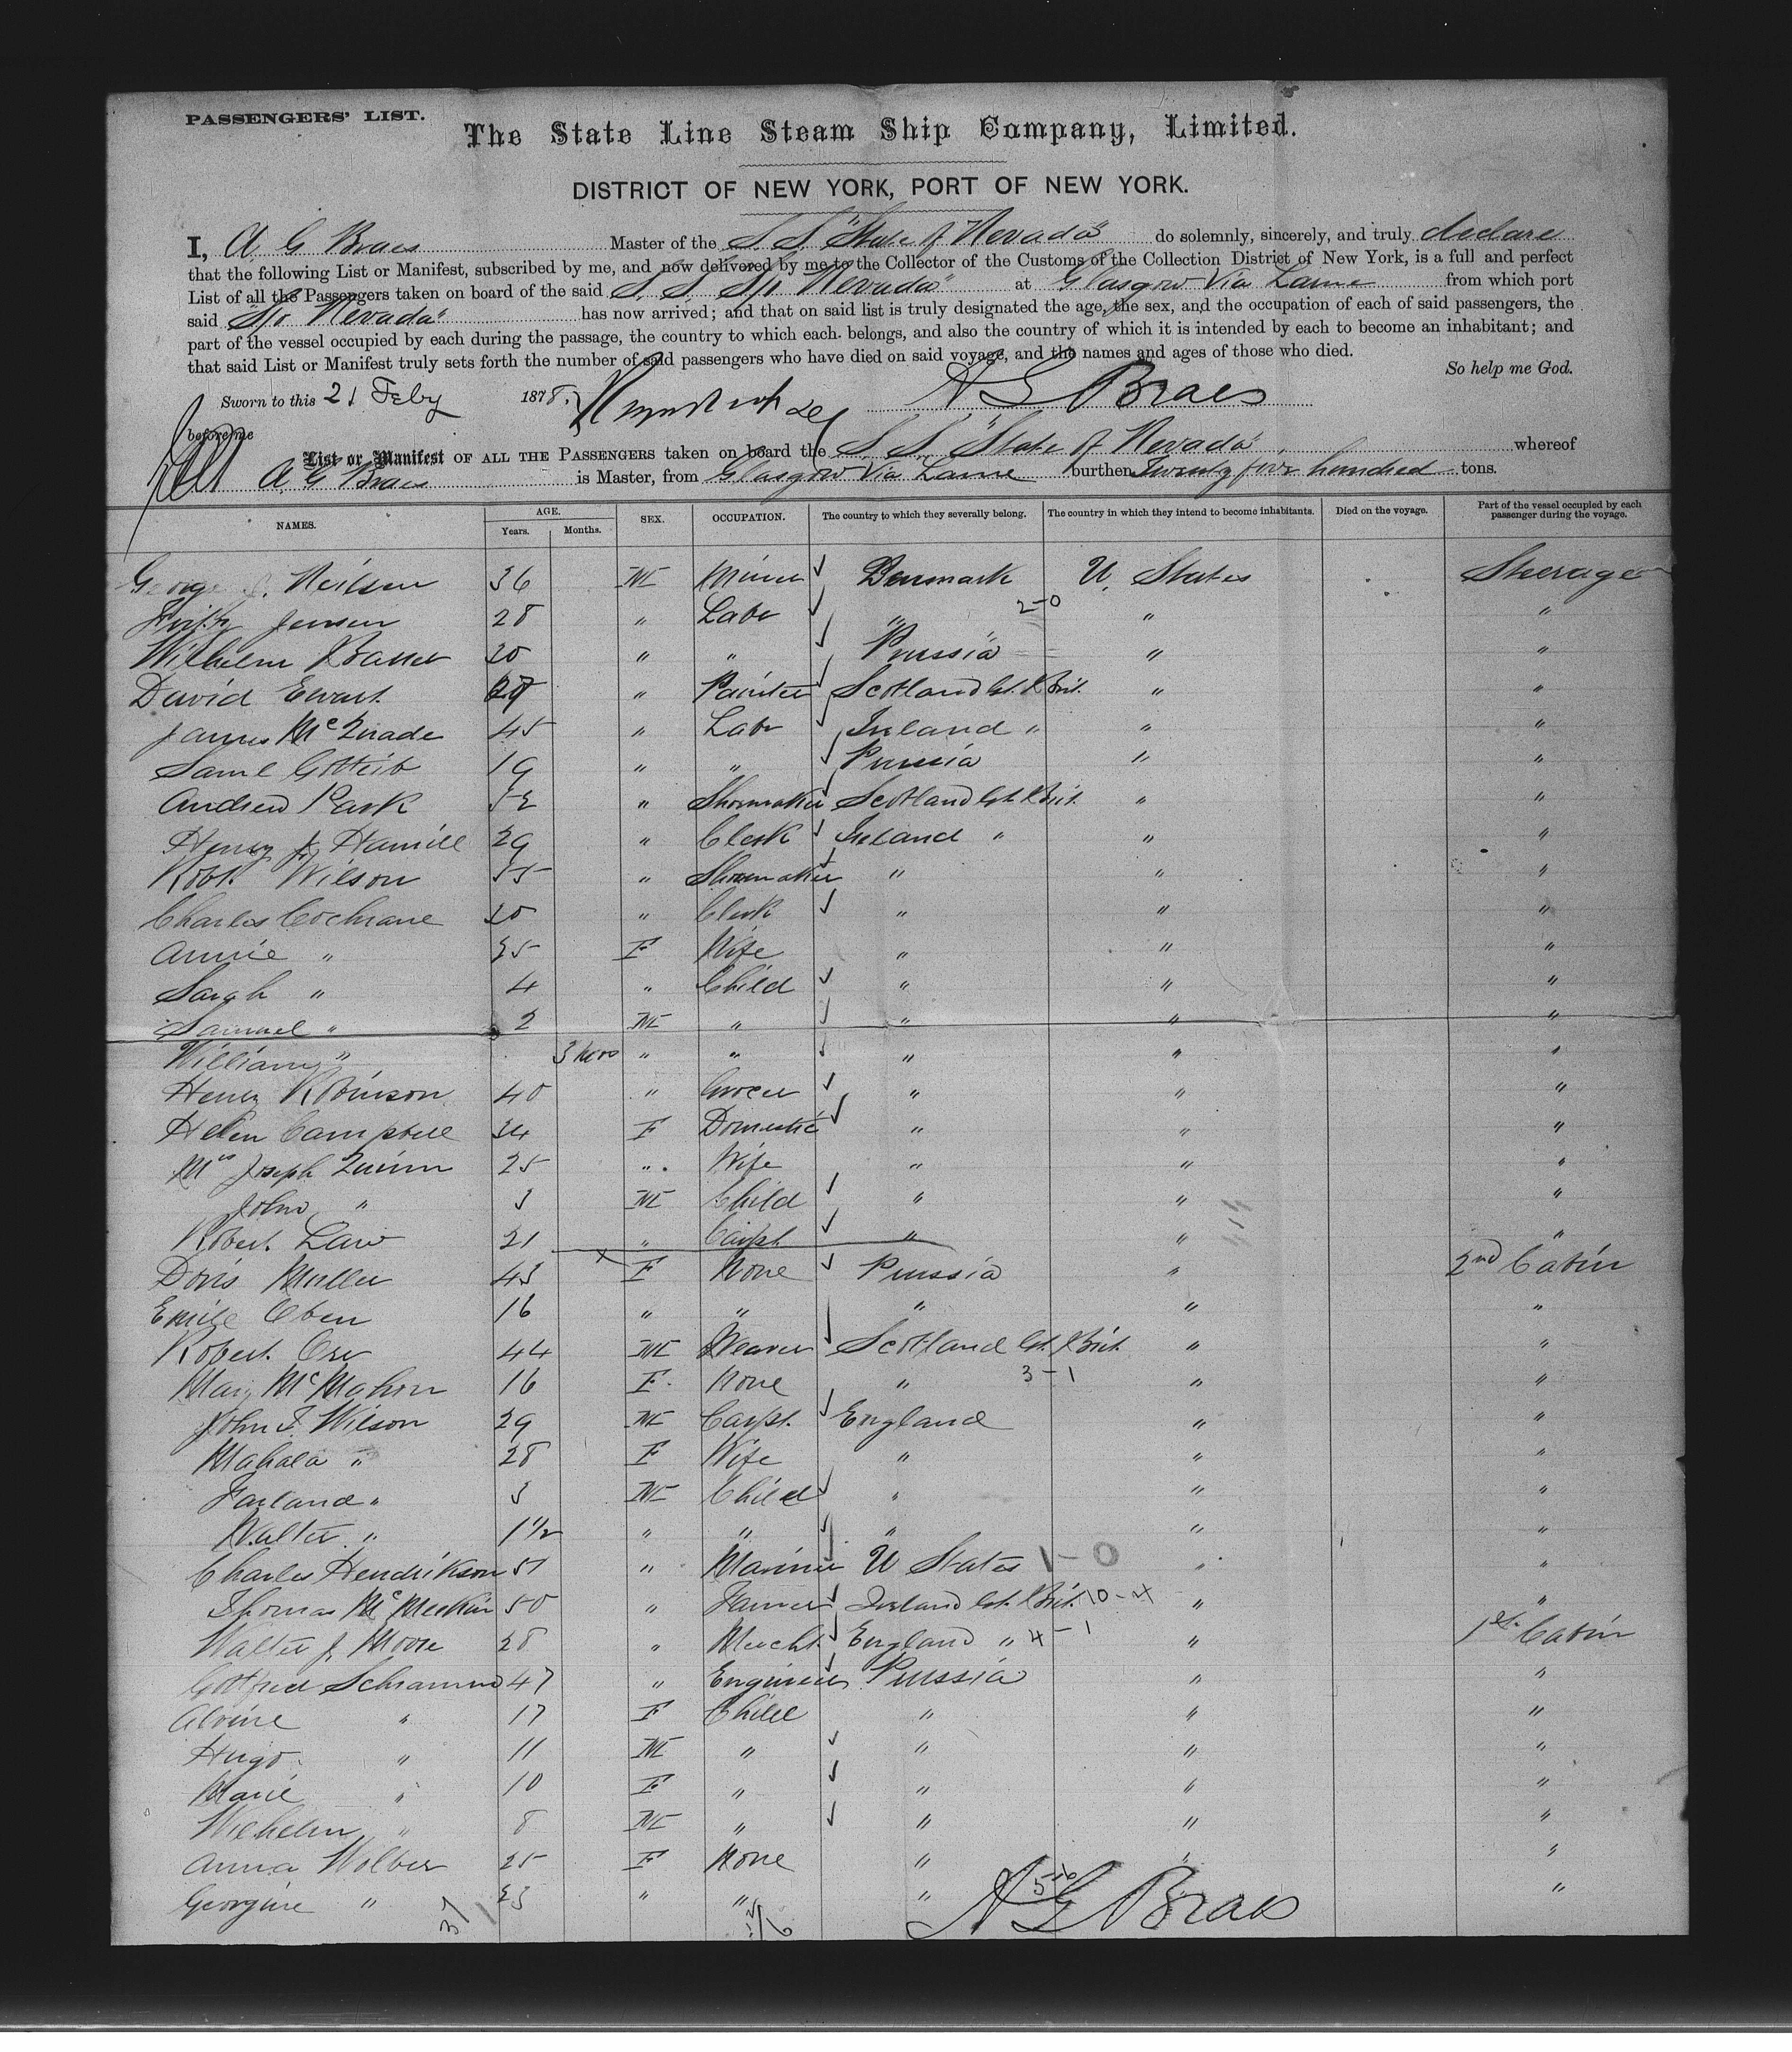 PASSENGERS' LIST.
The State Line Steam Ship Company, Limited.
DISTRICT OF NEW YORK, PORT OF NEW YORK.
I, A G Braes Master of the S. S. "State of Nevada" do solemnly, sincerely, and truly declare
that the following List or Manifest, subscribed by me, and now delivered by me to the Collector of the Customs of the Collection District of New York, is a full and perfect
List of all the Passengers taken on board of the said S. S. S/o Nevada" at Glasgow Via Larne from which port
said "S/o Nevada" has now arrived; and that on said list is truly designated the age, the sex, and the occupation of each of said passengers, the
part of the vessel occupied by each during the passage, the country to which each belongs, and also the country of which it is intended by each to become an inhabitant; and
that said List or Manifest truly sets forth the number of said passengers who have died on said voyage, and the names and ages of those who died.
So help me God.
Sworn to this 21 Feby 1878, A G Braes
before me
List or Manifest OF ALL THE PASSENGERS taken on board the S. S. "State of Nevada" whereof
A. G Braes is Master, from Glasgow Via Larne burthen Twenty five hundred tons.
NAMES. AGE. Years. Months. SEX. OCCUPATION. The country to which they severally belong. The country in which they intend to become inhabitants. Died on the voyage. Part of the vessel occupied by each passenger during the voyage.
George Neilsen 36 M Miner Denmark U. States Steerage
Jensen 28 " Labr " 2-0 " "
Wilhelm 20 " " Prussia " "
David Ewart 27 " Painter Scotland Gt. Brit. " "
James McQuade 45 " Labr Ireland " " "
Saml Gotteib 19 " " Prussia " "
Andrew Park 52 " Shoemaker Scotland Gt. Brit. " "
Henry J Hamill 29 " Clerk Ireland " " "
Robt. Wilson 55 " Shoemaker " " "
Charles Cochrane 30 " Clerk " " "
Annie " 25 F Wife " " "
Sarah " 4 " Child " " "
Samuel " 2 M " " " "
William " 3 mos " " " " "
Henry Robinson 40 " Grocer " " "
Helen Campbell 34 F Domestic " " "
Mrs Joseph Quinn 25 " Wife " " "
John " 3 M Child " " "
Robert Law 21 " Carpt. " " "
Doris Muller 43 F None Prussia " 2nd Cabin
Emile Eben 16 " " " " "
Robert Orr 44 M Weaver Scotland Gt. Brit. " "
Mary McMahon 16 F. None " 3-1 " "
John T. Wilson 29 M Carpt. England " "
Mahala " 28 F Wife " " "
Farland " 3 M Child " " "
Walter " 1 1/2 " " " " "
Charles Hendrikson 51 " Mariner U States 1-0 " "
Thomas McMeekin 50 " Farmer Ireland Gt. Brit. 10-4 " "
Walter J Moore 28 " Mercht. England " 4-1 " 1st Cabin
Gotfried Schramm 47 " Engineer Prussia " "
Alvine " 17 F Child " " "
Hugo " 11 M " " " "
Marie " 10 F " " " "
Wilhelm " 8 M " " " "
Anna Wolber 25 F None " " "
Georgine " 23 " " " "
37 A G Braes